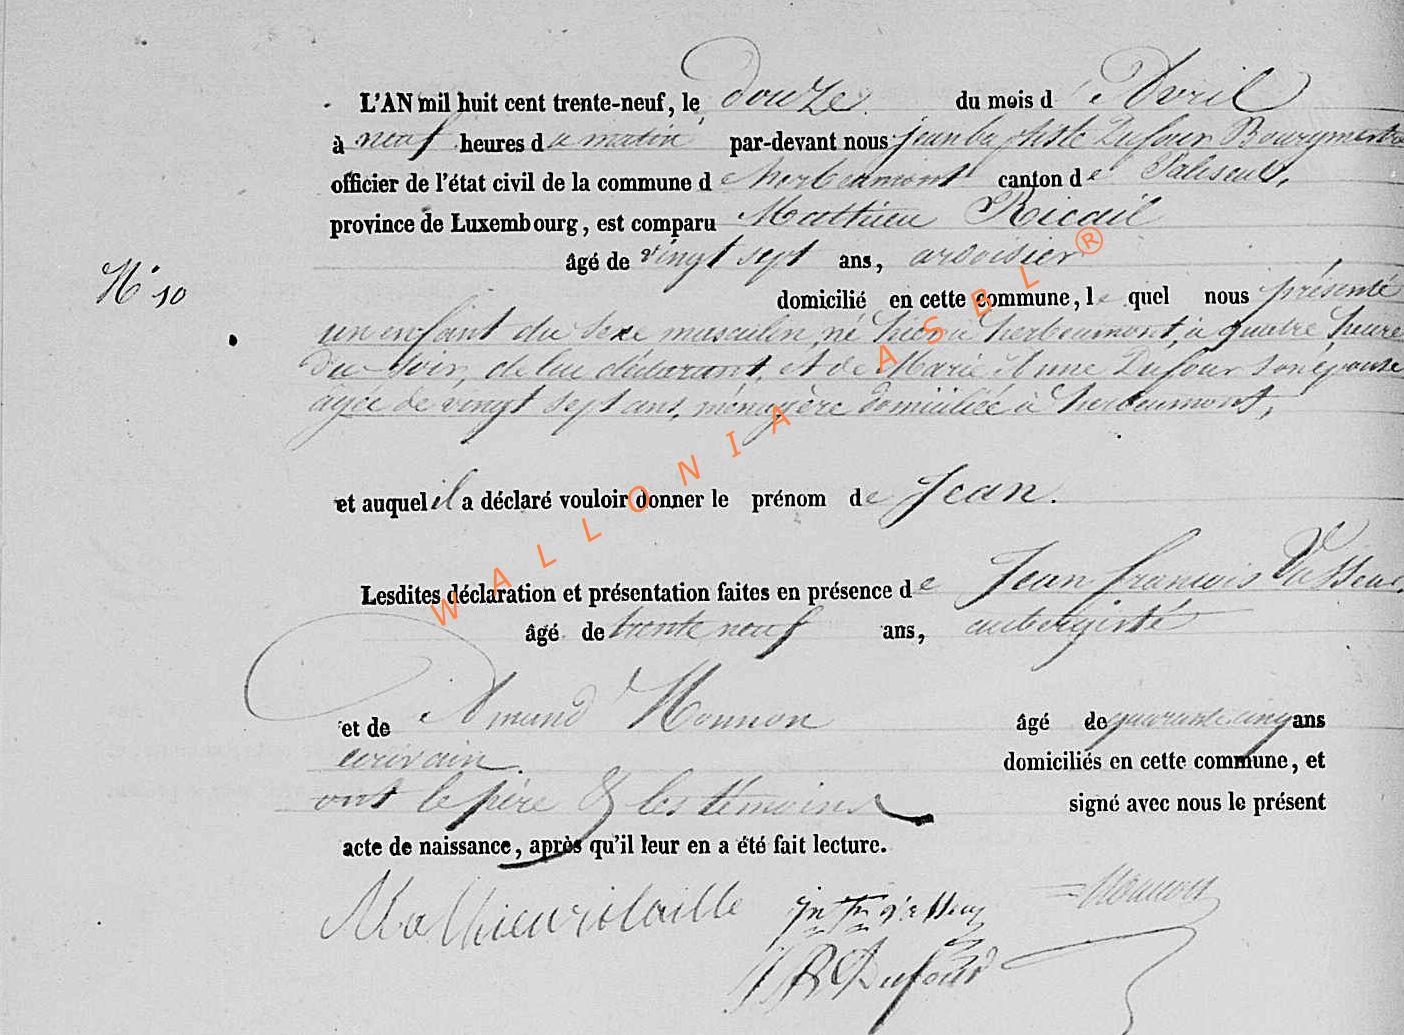 L'AN mil huit cent trente-neuf, le douze du mois d'Avril
à neuf heures du matin par-devant nous jean baptiste Dufour Bourgmestre
officier de l'état civil de la commune d'herbeumont canton de Paliseul,
province de Luxembourg, est comparu Mathieu Ricail
âgé de vingt sept ans, ardoisier
N° 10
domicilié en cette commune, lequel nous présenté
un enfant du sexe masculin, né hier à herbeumont, à quatre heure
du soir, de lui déclarant, et de Marie Anne Dufour son épouse
agée de vingt sept ans, ménagère domiciliée à herbeumont,
et auquel il a déclaré vouloir donner le prénom de Jean.
Lesdites déclaration et présentation faites en présence de Jean francois
âgé de trente neuf ans, aubergiste
et de Amand Monnon âgé de quarante cinq ans
écrivain. domiciliés en cette commune, et
ont le père & les témoins signé avec nous le présent
acte de naissance, après qu'il leur en a été fait lecture.
Mathieu Monnon
JB Dufour
WALLONIA ASBL ®